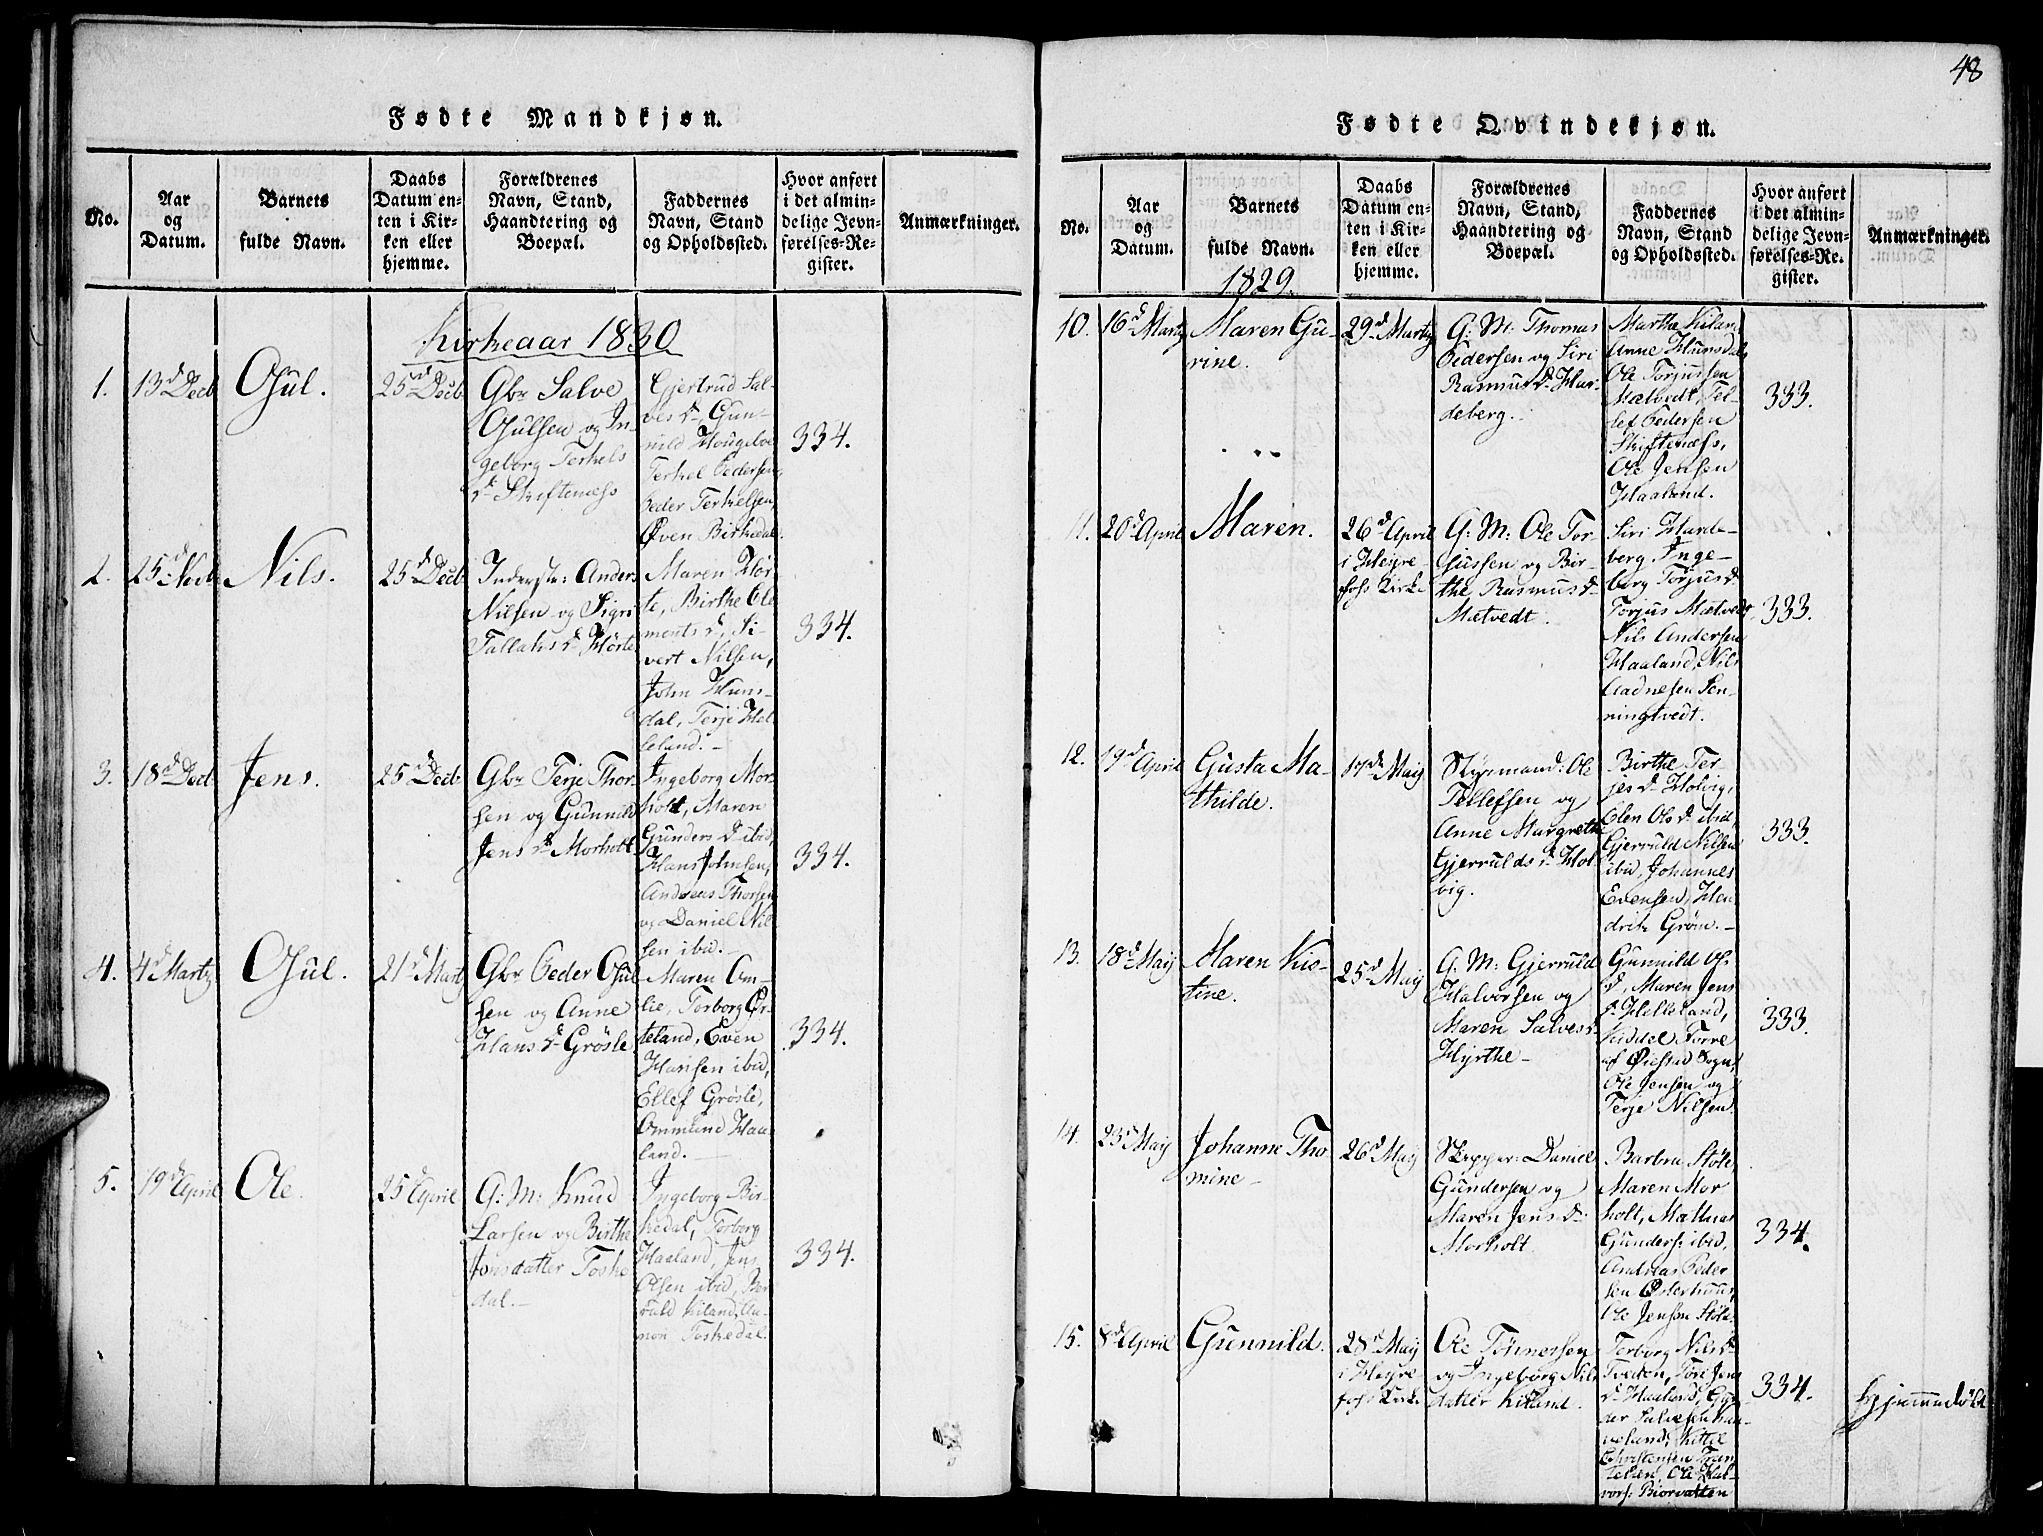 48
Fødte Mandkjøn.
No.
Aar
og
Datum.
Barnets
fulde Navn.
Daabs
Datum en-
ten i Kir-
ken eller
hjemme.
Forældrenes
Navn, Stand,
Haandtering og
Boepæl.
Faddernes
Navn, Stand
og Opholdssted.
Hvor anført
i det almin-
delige Jevn-
førelses-Re-
gister.
Anmærkninger.
Kirkeaar 1830
1.
13d Decb
Osul.
25d Decb
Gbr Salve
Osulsen og In-
geborg Terkels
d. Skiftenæss
Gjertrud Sal-
ves d. Gun-
nild
Terkel Pedersen,
Peder Terkelsen,
Øven Birkedal.
334.
2.
25d
Nils.
25d Decb
Inderste: Anders
Nilsen og Sigri
Tallaks d. Hørte
Maren Hør-
te, Birthe Cle
ments d. Si-
vert Nilsen,
John Huns-
dal, Terje Hel-
leland.
334.
3.
18d Decb
Jens.
25d Decb
Gbr Terje Thor-
sen og Gunnild
Jens d. Morholt
Ingeborg Mor-
holt, Maren
Gunders d. ibid,
Hans Johnsen,
Andreas Thorsen
og Daniel Nil-
sen ibid.
334.
4.
4d Marty
Osul.
21d Marty
Gbr Peder Osul
sen og Anne
Hans d. Grösle
Maren Om-
lie, Torborg Ør-
teland, Even
Hansen ibid,
Ellef Grösle,
Ommund Haa-
land.
334.
5.
19d April
Ole.
25 April
G: M: Knud
Larsen og Birthe
Jonsdatter Toske
dal.
Ingeborg Bir-
kedal, Torborg
Haaland, Jens
Olsen ibid, Ber
vald Kiland, Aa-
non Toskedal.
334.
Fødte Qvindekjøn.
No.
Aar
og
Datum.
Barnets
fulde Navn.
1829.
Daabs
Datum en-
ten i Kir-
ken eller
hjemme.
Forældrenes
Navn, Stand,
Haandtering og
Boepæl.
Faddernes
Navn, Stand
og Opholdssted.
Hvor anført
i det almin-
delige Jevn-
førelses-Re-
gister.
Anmærkninger.
10.
16d Marty
Maren Gu-
rine.
29d Marty
G: M: Thomas
Pedersen og Siri
Rasmus d. Har-
deberg.
Marthe Kiland
Anne Hunsdal,
Ole Torjussen
Mætvedt, Tel-
lef Pedersen
Skiftenæss,
Ole Jensen
Haaland.
333.
11.
20d April
Maren.
26d April
i Heyre-
foss Kirke
G: M: Ole Tor-
jussen og Bir-
the Rasmus d.
Mætvedt.
Siri Harde-
berg, Inge-
borg Torjus d.
Torjus Mætvedt
Nils Andersen
Haaland, Nils
Aadnesen Sen-
ningtvedt.
333.
12.
19d April
Gusta Ma-
thilde.
17d Maij
Styrmand: Ole
Tellefsen og
Anne Margrethe
Gjerrulds d. Hol
vig.
Birthe Ter-
jes d. Holvig,
Elen Ols d. ibid,
Gjerruld Nilsen
ibid, Johannes
Evensen, Hen-
drik Grøn.
333.
13.
18d Maij
Maren Kis-
tine.
25d Maij
G: M: Gjerruld
Halvorsen og
Maren Salves d.
Hyrthe
Gunnild Ols
d, Maren Jens
d. Helleland,
Kiddel Torre
af Øiestad Sogn,
Ole Jensen og
Terje Nilsen.
333.
14.
23d Maij
Johanne Tho
mine
26d Maij
Skipper: Daniel
Gundersen og
Maren Jens d.
Morholt
Barbru Støle,
Maren Mor
holt, Mathias
Gunders: ibid,
Andreas Peder
sen Osterhuus,
Ole Jensen Støle.
334.
15.
8d April
Gunnild.
28d Maij
i Heyre
foss Kirke
Ole Tönnessen
og Ingeborg Nils
datter Kiland.
Torborg Nils d.
Tveden, Tore Jens
d. Haaland,
der Salvesen
veland, Kittil
Christensen
Ole Hal-
vors: Biorvatten
334.
hjemmedøbt